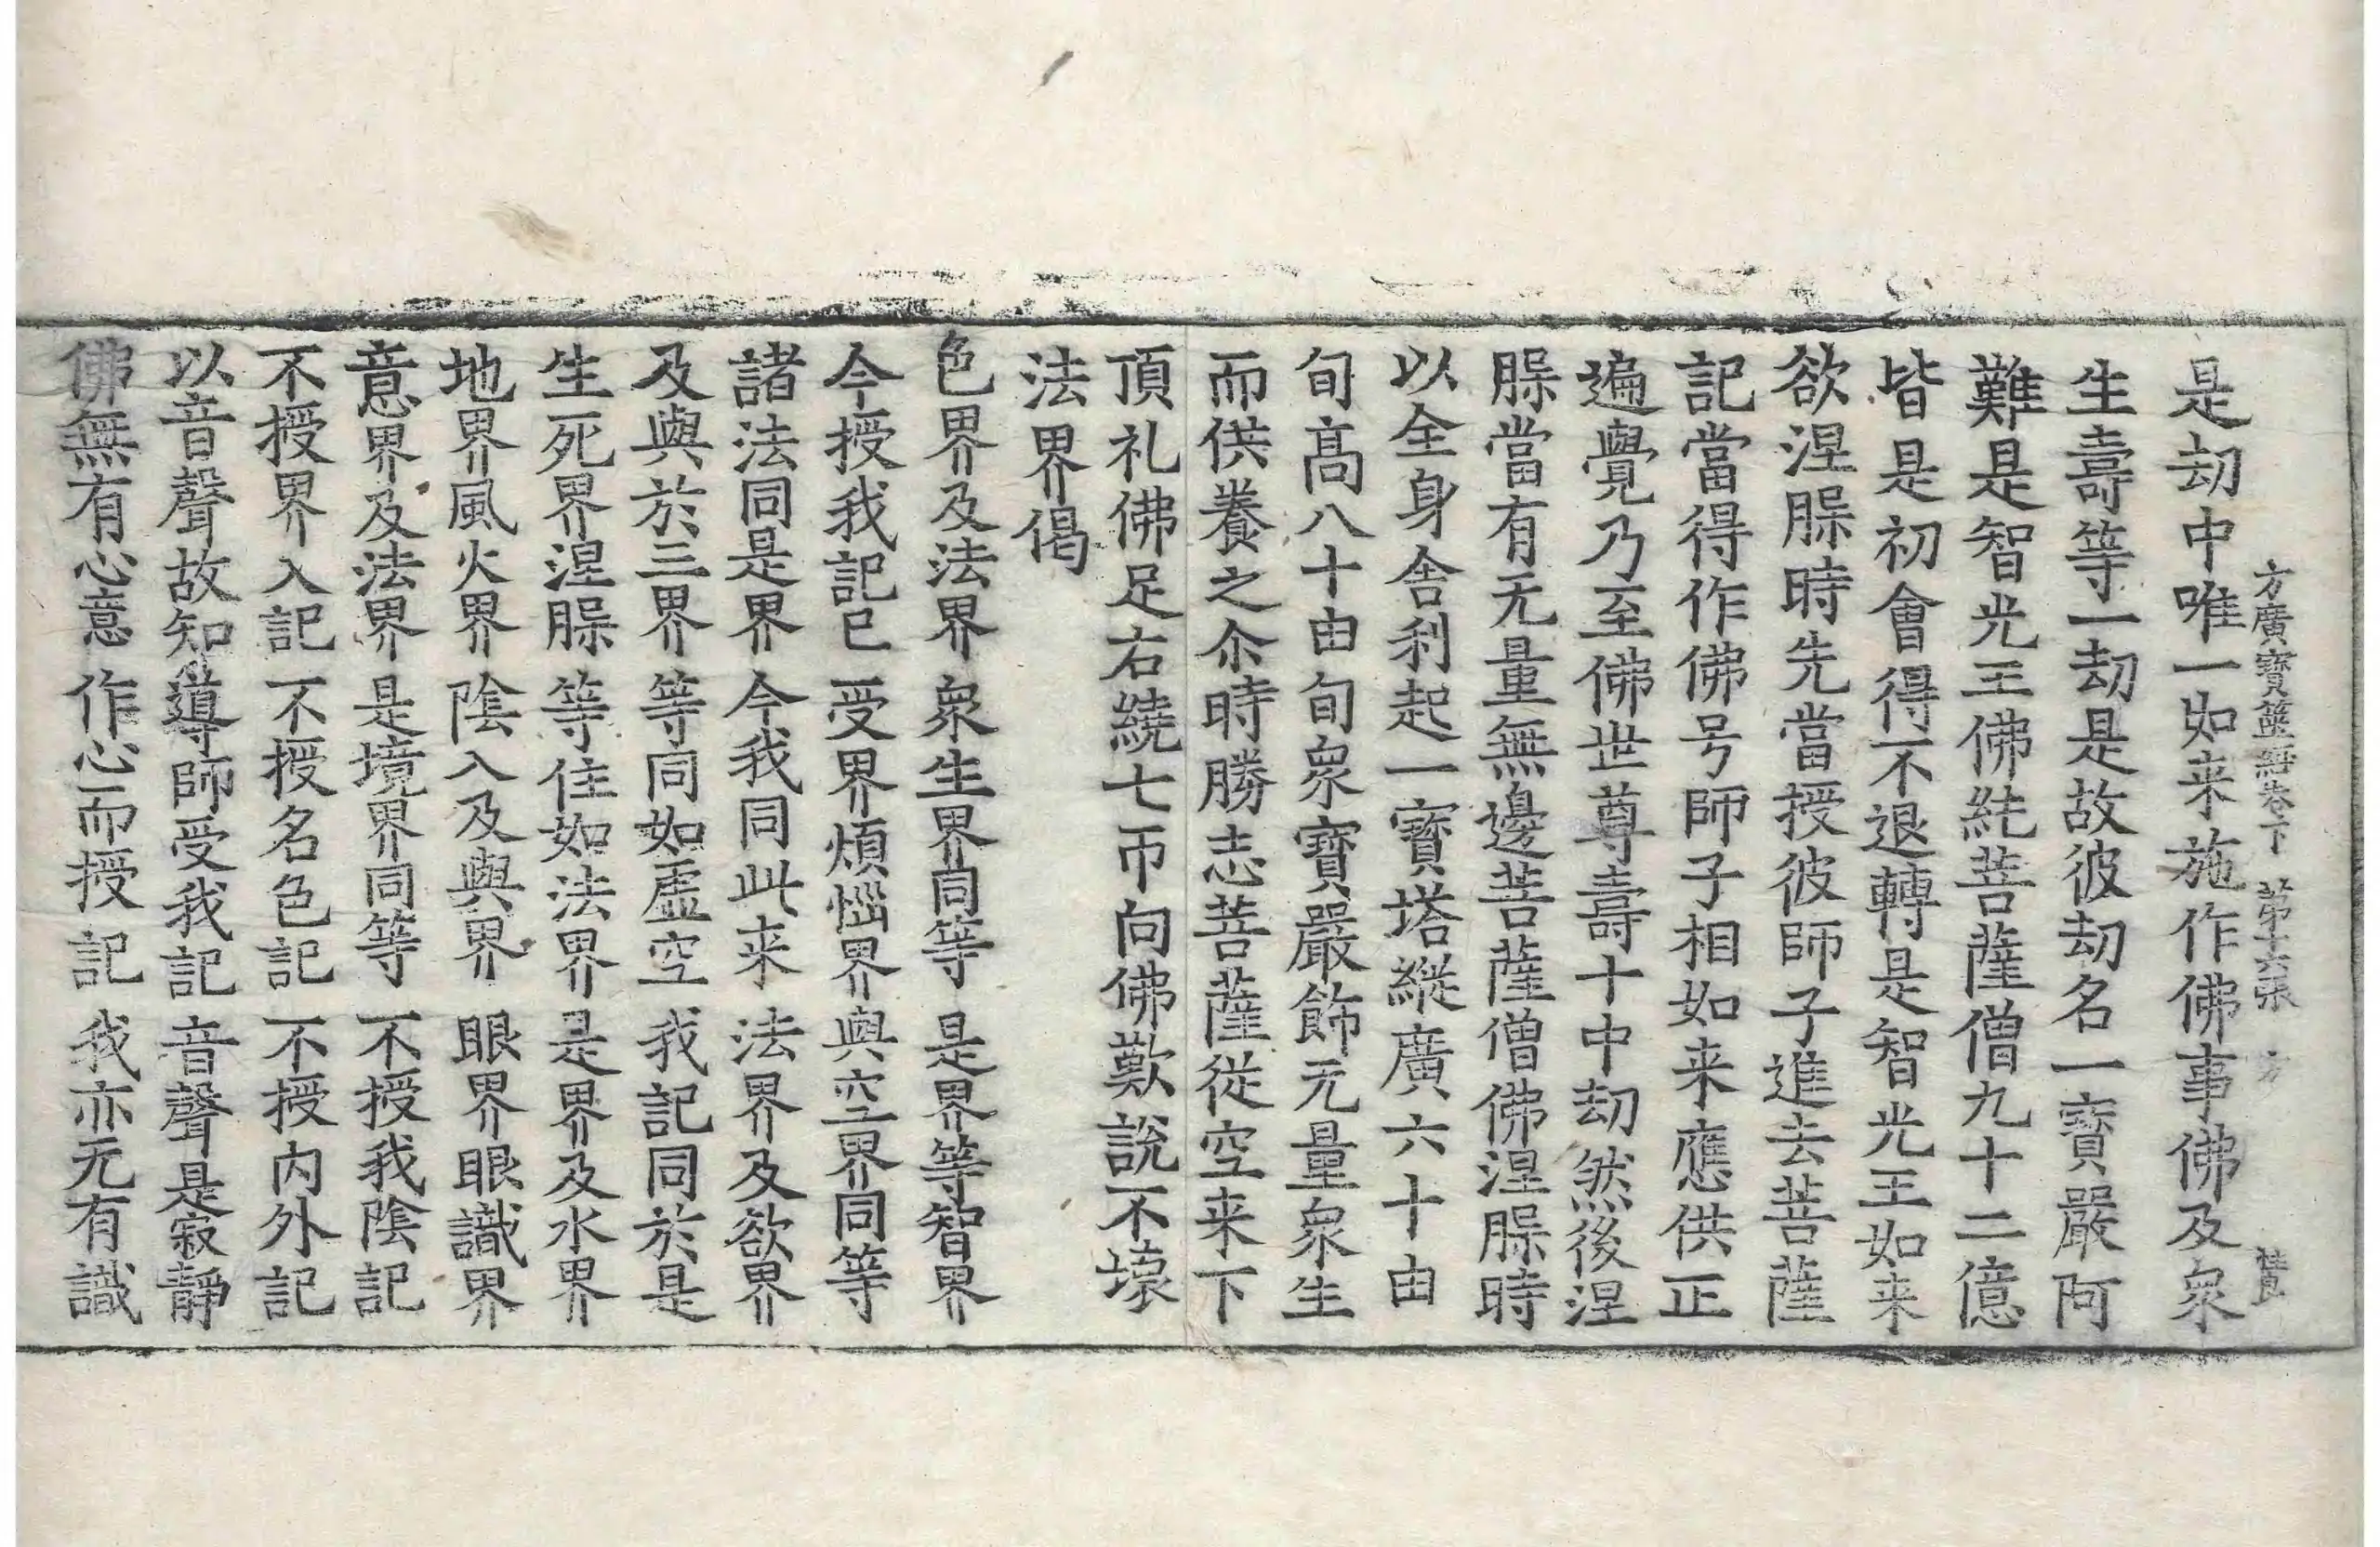 方廣寶篋經卷下 第十六張 方
是劫中唯一如来施作佛事佛及衆
生壽等一劫是故彼劫名一寶嚴阿
難是智光王佛純菩薩僧九十二億
皆是初會得不退轉是智光王如来
欲涅槃時先當授彼師子進去菩薩
記當得作佛号師子相如来應供正
遍覺乃至佛世尊壽十中劫然後涅
槃當有无量無邊菩薩僧佛涅槃時
以全身舍利起一寶塔縱廣六十由
旬髙八十由旬衆寶嚴飾无量衆生
而供養之尒時勝志菩薩從空来下
頂礼佛足右繞七帀向佛歎說不壞
法界偈
色界及法界 衆生界同等 是界等智界
今授我記已 受界煩惱界 與空界同等
諸法同是界 今我同此来 法界及欲界
及與於三界 等同如虛空 我記同於是
生死界涅槃 等住如法界 是界及水界
地界風火界 陰入及與界 眼界眼識界
意界及法界 是境界同等 不授我陰記
不授界入記 不授名色記 不授内外記
以音聲故知 導師受我記 音聲是寂靜
佛無有心意 作心而授記 我亦无有識